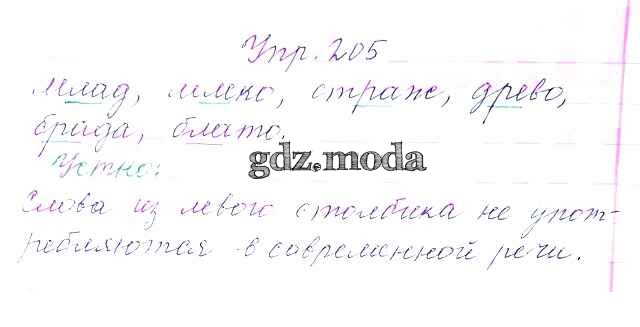 Упр. 205
млад, млеко, страж, древо,
брада, блато.
Устно:
gdz.moda
Слова из левого столбика не упот-
ребляются в современной речи.